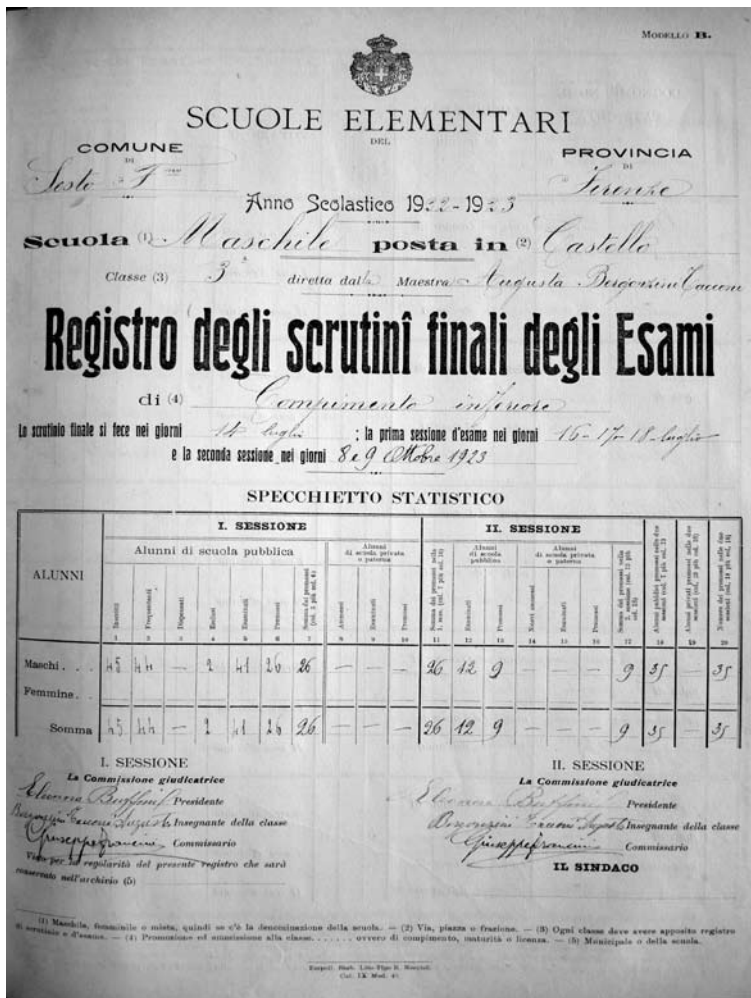 MODELLO B.
SCUOLE ELEMENTARI
DEL
COMUNE
DI
Sesto F
PROVINCIA
DI
Firenze
Anno Scolastico 1922-1923
Scuola (1) Maschile posta in (2) Castello
Classe (3) 3a diretta dalla Maestra Augusta Bergonzini Tacconi
Registro degli scrutinî finali degli Esami
di (4) Compimento inferiore
Lo scrutinio finale si fece nei giorni 14 luglio ; la prima sessione d'esame nei giorni 16-17-18-luglio
e la seconda sessione nei giorni 8 e 9 Ottobre 1923
SPECCHIETTO STATISTICO
ALUNNI
I. SESSIONE
II. SESSIONE
Alunni di scuola pubblica
Alunni di scuola privata o paterna
Alunni di scuola pubblica
Alunni di scuola privata o paterna
Inscritti
Frequentanti
Dispensati
Esclusi
Esaminati
Promossi
Esaminati
Promossi
Esaminati
Promossi
Esaminati
Promossi
1 2 3 4 5 6 7 8 9 10 11 12 13 14 15 16 17 18 19 20
Maschi . . . 45 44 — 2 41 26 26 — — — 26 12 9 — — — 9 35 — 35
Femmine . .
Somma 45 44 — 2 41 26 26 — — — 26 12 9 — — — 9 35 — 35
I. SESSIONE
La Commissione giudicatrice
Presidente
Insegnante della classe
Giuseppe Commissario
Visto per la regolarità del presente registro che sarà
conservato nell'archivio (5)
II. SESSIONE
La Commissione giudicatrice
Presidente
Insegnante della classe
Giuseppe Commissario
IL SINDACO
(1) Maschile, femminile o mista, quindi se c'è la denominazione della scuola. — (2) Via, piazza o frazione. — (3) Ogni classe deve avere apposito registro
di scrutinio e d'esame. — (4) Promozione ed ammissione alla classe. . . . . . . ovvero di compimento, maturità o licenza. — (5) Municipale o della scuola.